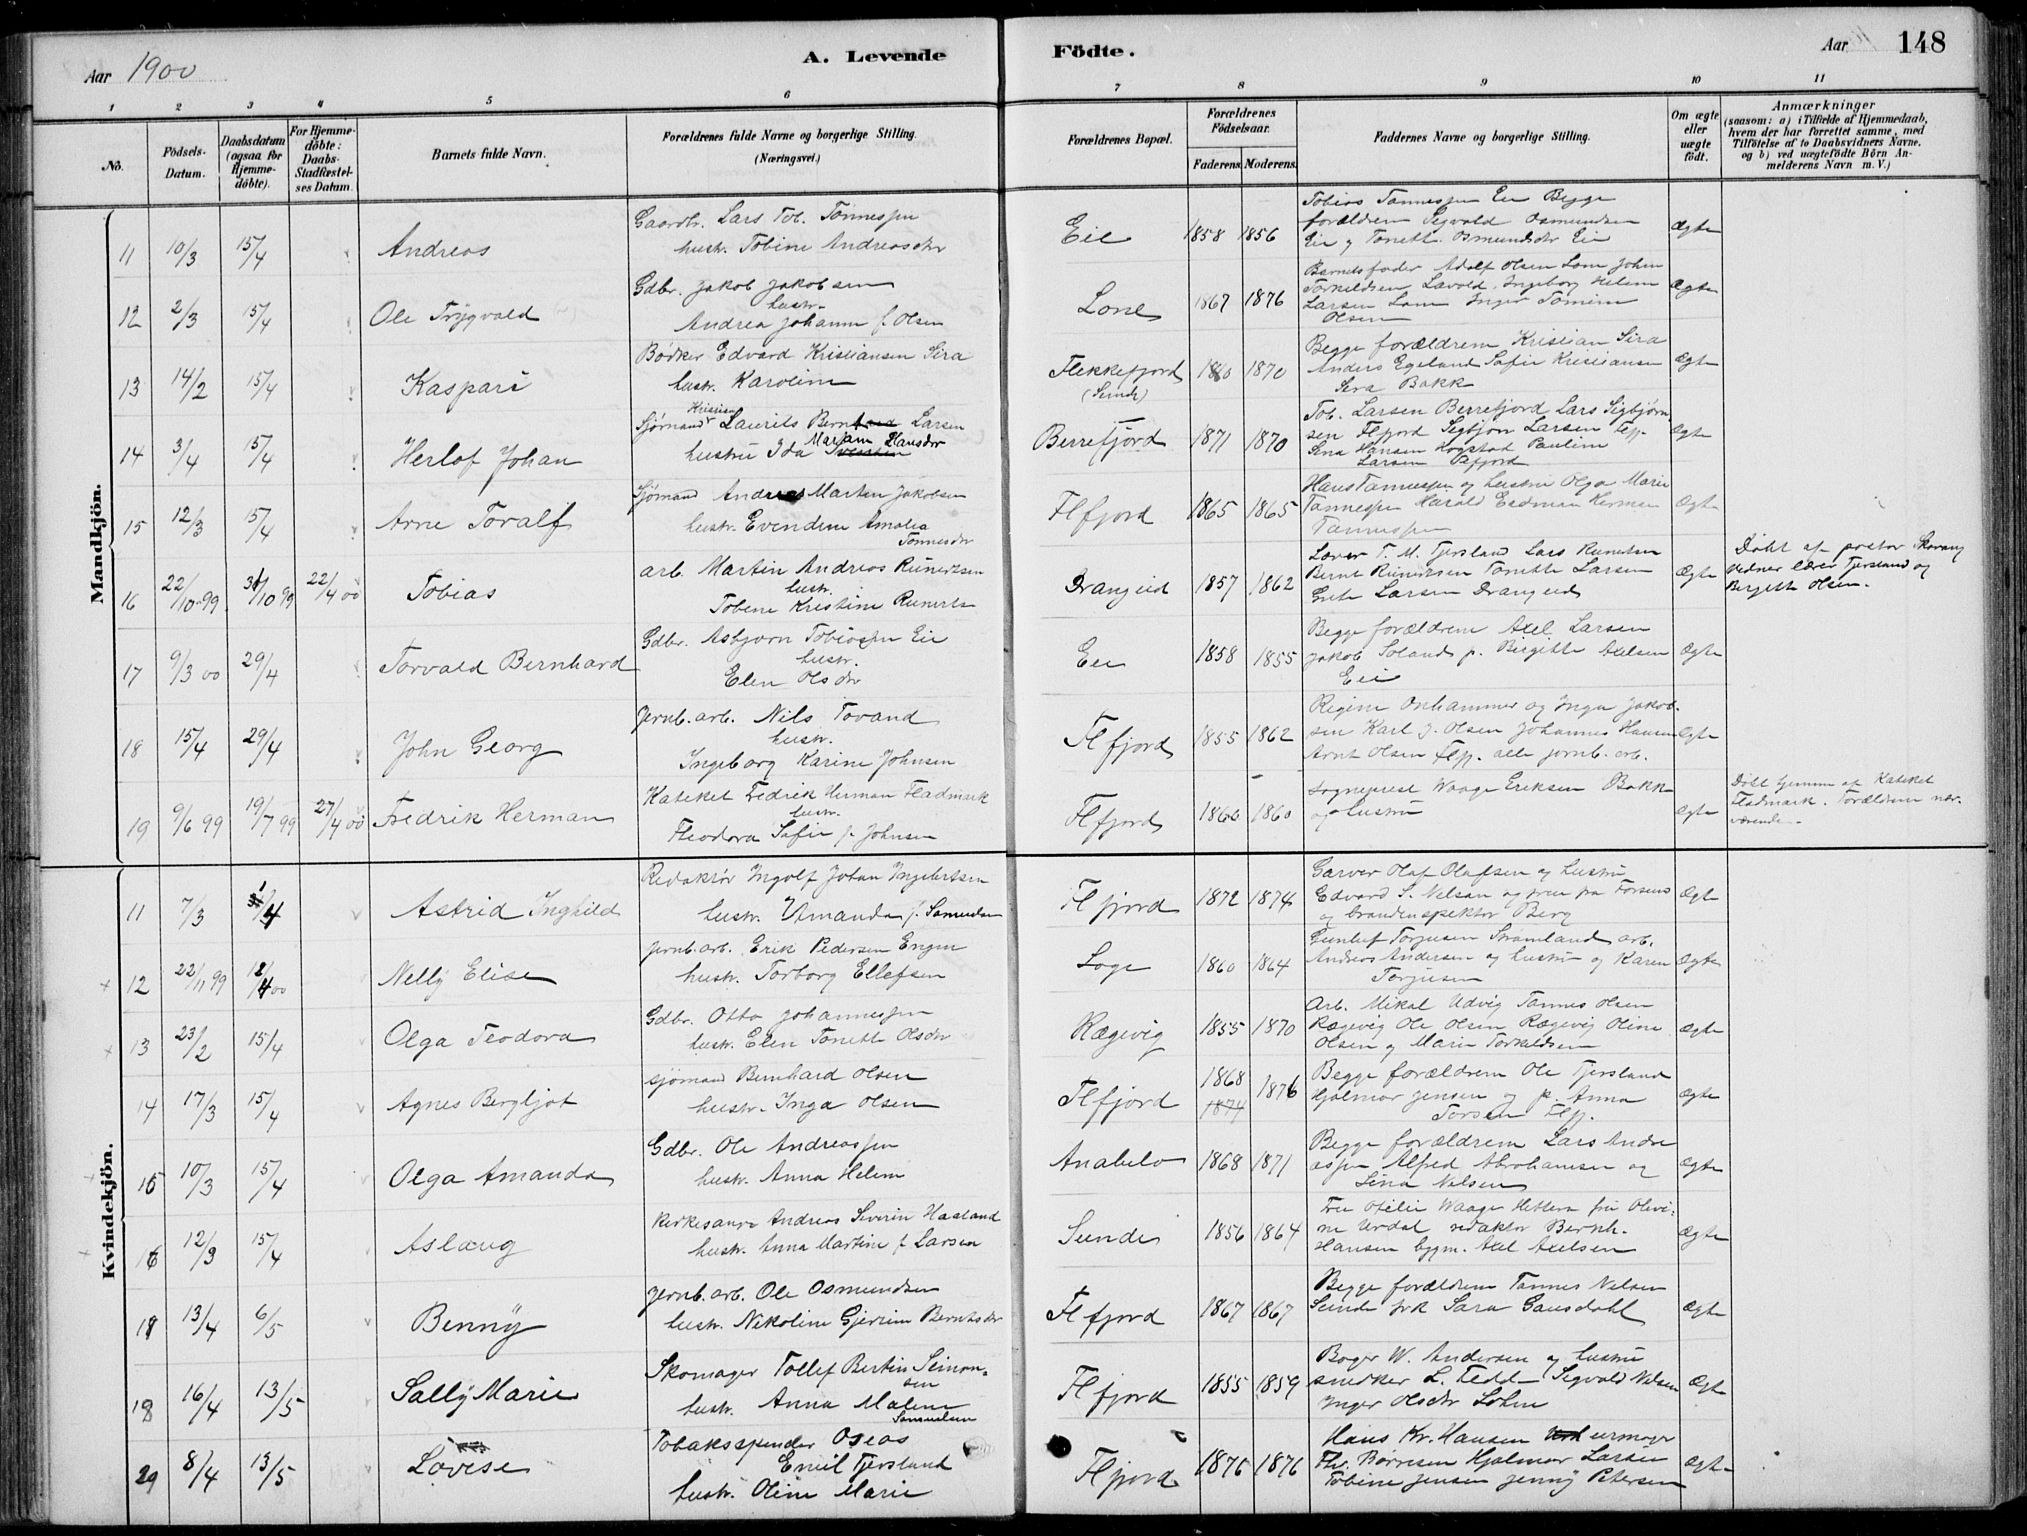 Aar 1900
A. Levende
Födte.
Aar
148
1 2 3 4 5 6 7 8 9 10 11
No.
Födsels-Datum.
Daabsdatum (ogsaa for Hjemme-döbte).
For Hjemme-döbte: Daabs-Stadfæstel-ses Datum.
Barnets fulde Navn.
Forældrenes fulde Navne og borgerlige Stilling.
(Næringsvei.)
Forældrenes Bopæl.
Forældrenes Födselsaar.
Faderens. Moderens.
Faddernes Navne og borgerlige Stilling.
Om ægte eller uægte födt.
Anmærkninger
(saasom: a) i Tilfælde af Hjemmedaab,
hvem der har forrettet samme, med
Tilföielse af to Daabsvidners Navne,
og b) ved uægtefödte Börn An-
melderens Navn m. V.)
Mandkjön.
11 10/3 15/4 Andreas
Gaardbr. Lars Tob. Tønnessen
hustr. Tobine Andreasdtr
Eie 1858 1856
Tobias Tønnessen Eie Begge
forældrene Sigvald Osmundsen
Eie og Tonette Osmundsdtr Eie
Ægte
12 2/3 15/4 Ole Trygvald
Gdbr. Jakob Jakobsen
hustr.
Andrea Johanne f. Olsen
Lone 1867 1876
Barnets fader Adolf Olsen Lone John
Torkildsen Lavold Ingeborg Helene
Larsen Lone Inger Tomine
Olsen
Ægte
13 14/2 15/4 Kaspari
Bødker Edvard Kristiansen Sira
hustr. Karoline
Flekkefjord
(Sunde)
1860 1870
Begge forældrene Kristian Sira
Anders Egeland Sofie Kristiansen
Sira Bakk
Ægte
14 3/4 15/4 Herlof Johan
Sjømand Laurits Larsen
hustru Ida Hansdtr
Berrefjord 1871 1870
Tob. Larsen Berrefjord Lars Sigbjørn
sen Flfjord Sigbjørn Larsen
Hansen Pauline
Larsen
Ægte
15 12/3 15/4 Arne Toralf
Sjømand Andreas Martin Jakobsen
hustr. Evendine Amalia
Tønnesdtr
Flfjord 1865 1865
Hans Tønnessen og hustru Olga Marie
Tønnessen Harald Erdman Herman
Tønnessen
Ægte
16 22/10 99 31/10 99 22/4 00 Tobias
arb. Martin Andreas Runertsen
hustr.
Tobine Kristine
Drangeid 1857 1862
Lærer T. M. Tjersland Lars Runertsen
Bernt Runertsen Tonette Larsen
Grete Larsen Drangeid
Ægte
Døbt af pastor
Vidner lærer Tjersland og
Bergitte Olsen.
17 9/3 00 29/4 Torvald Bernhard
Gdbr. Asbjørn Tobiassen Eie
hustr.
Elen Olsdtr
Eie 1858 1855
Begge forældrene Axel Larsen
Jakob Soland p. Birgitte Axelsen
Eie
Ægte
18 15/4 29/4 John Georg
Jernb. arb. Nils Tovand
hustr.
Ingeborg Karine Johnsen
Flfjord 1855 1862
Regine Onhammer og Inga Jakob-
sen Karl J. Olsen Johannes Hansen
Arnt Olsen Flfj. alle jernb. arb.
Ægte
19 9/6 99 19/7 99 27/4 00 Fredrik Herman
Kateket Fredrik Herman Fladmark
hustr.
Theodora Sofie f. Johnsen
Flfjord 1860 1860
Sogneprest Waage Eriksen Bakk
og hustru
Ægte
Døbt hjemme af Kateket
Fladmark. Forældrene nær-
værende.
Kvindekjön.
11 7/3 1/4 Astrid Inghild
Redaktør Ingolf Johan Ingebretsen
hustr. Amanda f. Samuelsen
Flfjord 1872 1874
Garver Olaf Olafsen og hustru
Edvard S. Nelsen og
og brandinspektør Berg
Ægte
12 22/11 99 12/4 00 Nelly Elise
Jernb. arb. Erik Pedersen Engen
hustr. Torborg Ellefsen
Loge 1860 1864
Gunluf Torjusen Strømland arb.
Anders Andersen og hustru og Karen
Torjusen
Ægte
13 23/2 15/4 Olga Teodora
Gdbr. Otto Johannessen
hustr. Elen Tonette Olsdtr
Rægevig 1855 1870
Arb. Mikal Udvig Tønnes Olsen
Rægevig Ole Olsen Rægevig Oline
Olsen og Marie Torkildsen
Ægte
14 17/3 15/4 Agnes Bergljot
Sjømand Bernhard Olsen
hustr. Inga Olsen
Flfjord 1868 1874 1876
Begge forældrene Ole Tjersland
Hjalmar Jensen og p. Anna
Torsen Flfj.
Ægte
15 10/3 15/4 Olga Amanda
Gdbr. Ole Andreassen
hustr. Anna Helene
Anabelo 1868 1871
Begge forældrene Lars Andre
assen Alfred Abrahamsen og
Lina Nelsen
Ægte
16 12/3 15/4 Aslaug
Kirkesanger Andreas Severin Haaland
hustr. Anna Martine f. Larsen
Sunde 1856 1864
Fru Otilie Waage fru Olivi-
ne Urdal redaktør Bernh.
Hansen bygm. Axel Axelsen
Ægte
17 13/4 6/5 Benny
Jernb. arb. Ole Osmundsen
hustr. Nikoline Gjerine Berntsdtr
Flfjord 1867 1867
Begge forældrene Tønnes Nelsen
Sunde frk Sara Gausdahl
Ægte
18 16/4 13/5 Sally Marie
Skomager Tollef Bertin Simon-
sen
hustr. Anna Malene
Samuelsen
Flfjord 1855 1859
Bager W. Andersen og hustru
snedker L. Fedd Sigvald Nelsen
Inger Olsdtr Lohne
Ægte
29 8/4 13/5 Lovise
Tobaksspinder Oseas
Emil Tjersland
hustr. Oline Marie
Flfjord 1876 1876
Hans Kr. Hansen urmager
Thr. Børresen Hjalmar Larsen
Tobine Jensen Jenny Petersen
Ægte